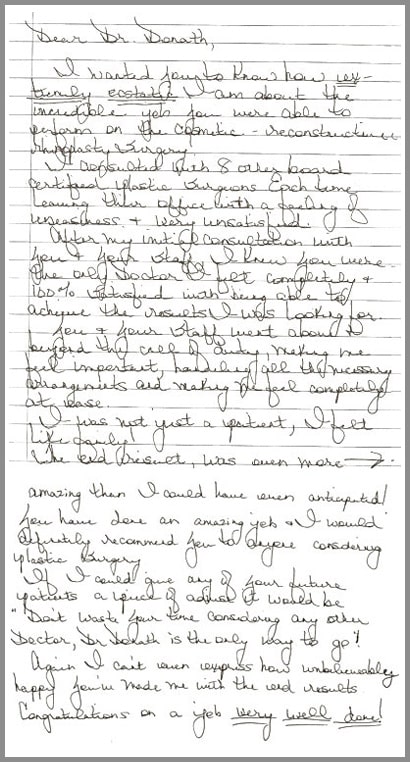 Dear Dr. Donath,
I wanted you to know how ex-
tremely ecstatic I am about the
incredible job you were able to
perform on the cosmetic - reconstructive
rhinoplasty surgery.
I consulted with 8 other board
certified plastic surgeons Each time
leaving their office with a feeling of
uneasiness + very unsatisfied.
After my initial consultation with
you + your staff, I knew you were
the only Doctor I felt completely +
100% satisfied with being able to
achieve the results I was looking for.
You + your staff went above +
beyond the call of duty, making me
feel important, handling all the necessary
arrangements and making me feel completely
at ease.
I was not just a patient, I felt
like family!
The end result, was even more →
amazing than I could have even anticipated!
You have done an amazing job + I would
definitely recommend you to anyone considering
plastic surgery
If I could give any of your future
patients a piece of advise it would be
"Don't waste your time considering any other
Doctor, Dr. Donath is the only way to go"!
Again I can't even express how unbelievably
happy you've made me with the end results
Congratulations on a job very well done!